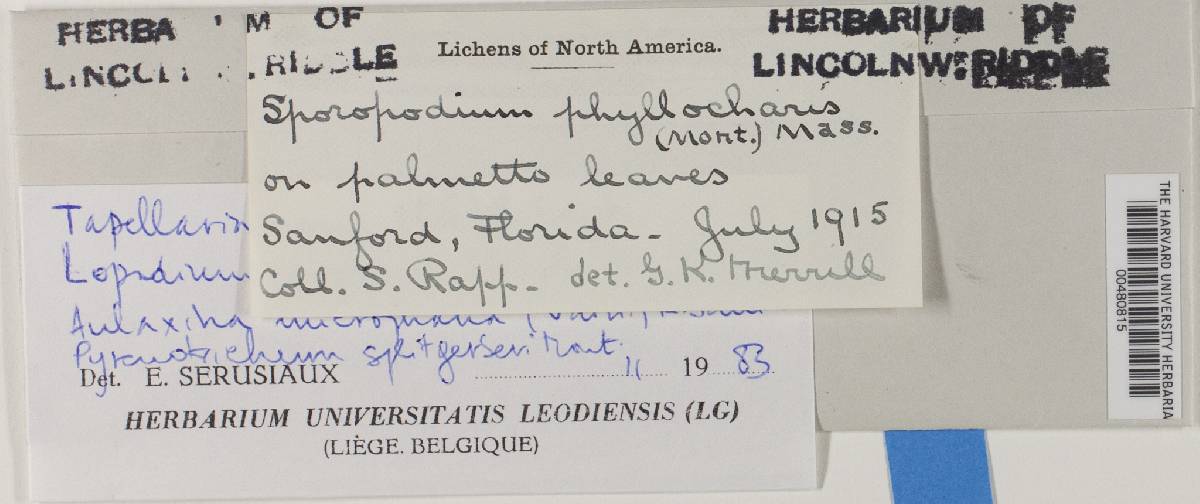 HERBARIUM OF
LINCOLN W. RIDDLE
HERBA M OF
LINCOL RIDDLE
Lichens of North America.
Sporopodium phyllocharis
(Mont.) Mass.
on palmetto leaves
Sanford, Florida - July 1915
Coll. S. Rapp - det. G. K. Merrill
Tapellaria
Lopadium
Aulaxina
Pyrenotrichum splitgerberi Mont.
Det. E. SERUSIAUX 11 1983
HERBARIUM UNIVERSITATIS LEODIENSIS (LG)
(LIÈGE. BELGIQUE)
THE HARVARD UNIVERSITY HERBARIA
00480815